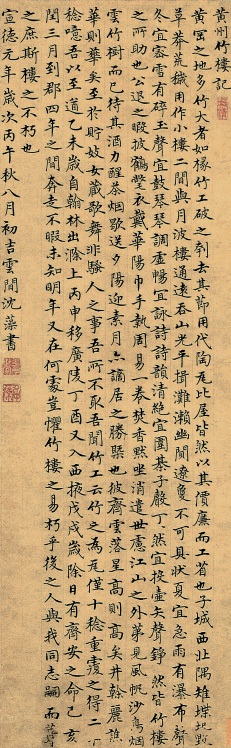 黃州竹樓記
黃岡之地多竹大者如椽竹工破之刳去其節用代陶瓦比屋皆然以其價廉而工省也子城西北隅雉堞圮毀
草莽荒穢用作小樓二間與月波樓通遠吞山光平挹灘瀨幽闃遼敻不可具狀夏宜急雨有瀑布聲
冬宜密雪有碎玉聲宜鼓琴琴調虛暢宜詠詩詩韻清絕宜圍棊子聲丁丁然宜投壺矢聲錚錚然皆竹樓
之所助也公退之暇披鶴氅衣戴華陽巾手執周易一卷焚香默坐消遣世慮江山之外第見風帆沙鳥烟
雲竹樹而已待其酒力醒茶烟歇送夕陽迎素月亦謫居之勝槩也彼齊雲落星高則高矣井幹麗譙
華則華矣至於貯妓女藏歌舞非騷人之事吾所不取吾聞竹工云竹之為瓦僅十稔重覆之得二十
稔噫吾以至道乙未歲自翰林出滁上丙申移廣陵丁酉又入西掖戊戌歲除日有齊安之命己亥
閏三月到郡四年之間奔走不暇未知明年又在何處豈懼竹樓之易朽乎後之人與我同志嗣而葺
之庶斯樓之不朽也
宣德元年歲次丙午秋八月初吉雲間沈藻書